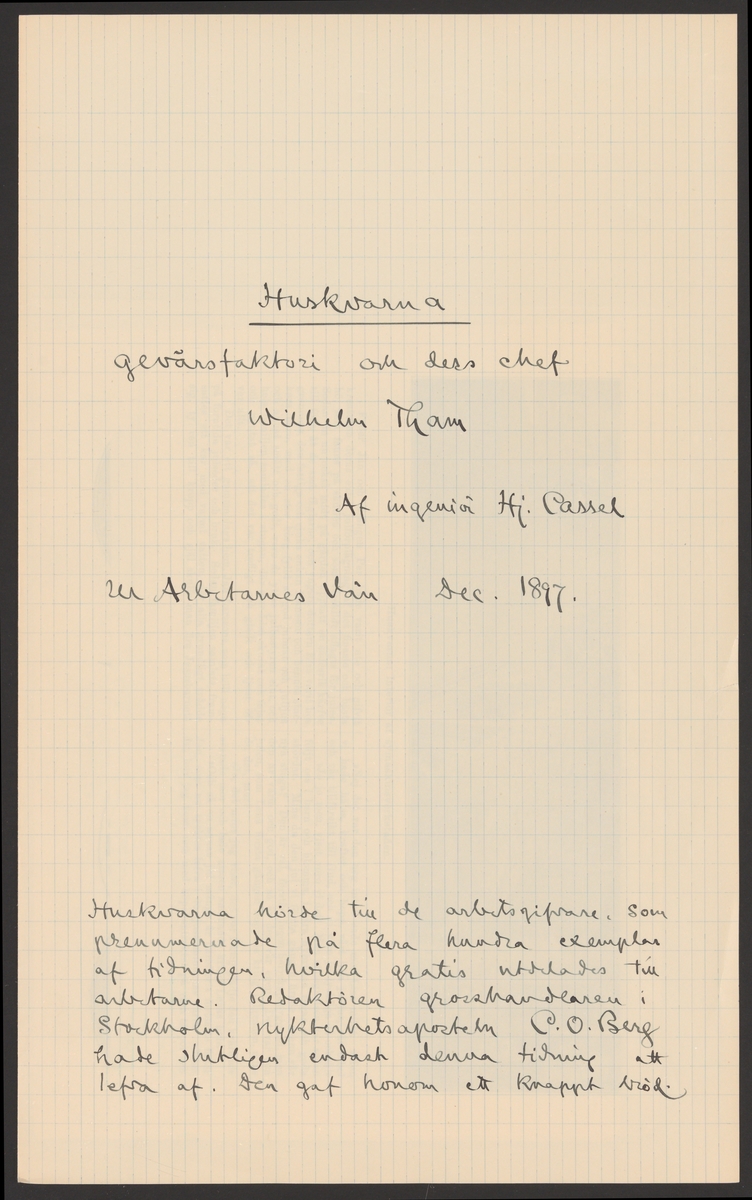 Huskvarna
gevärsfaktori och dess chef
Wilhelm Tham
Af ingeniör Hj. Cassel
ur Arbetarnes Vän Dec. 1897.
Huskvarna hörde till de arbetsgifvare, som
prenumererade på flera hundra exemplar
af tidningen, hvilka gratis utdelades till
arbetarne. Redaktören grosshandlaren i
Stockholm, nykterhetsaposteln C. O. Berg
hade slutligen endast denna tidning att
lefva af. Den gaf honom ett knappt bröd.